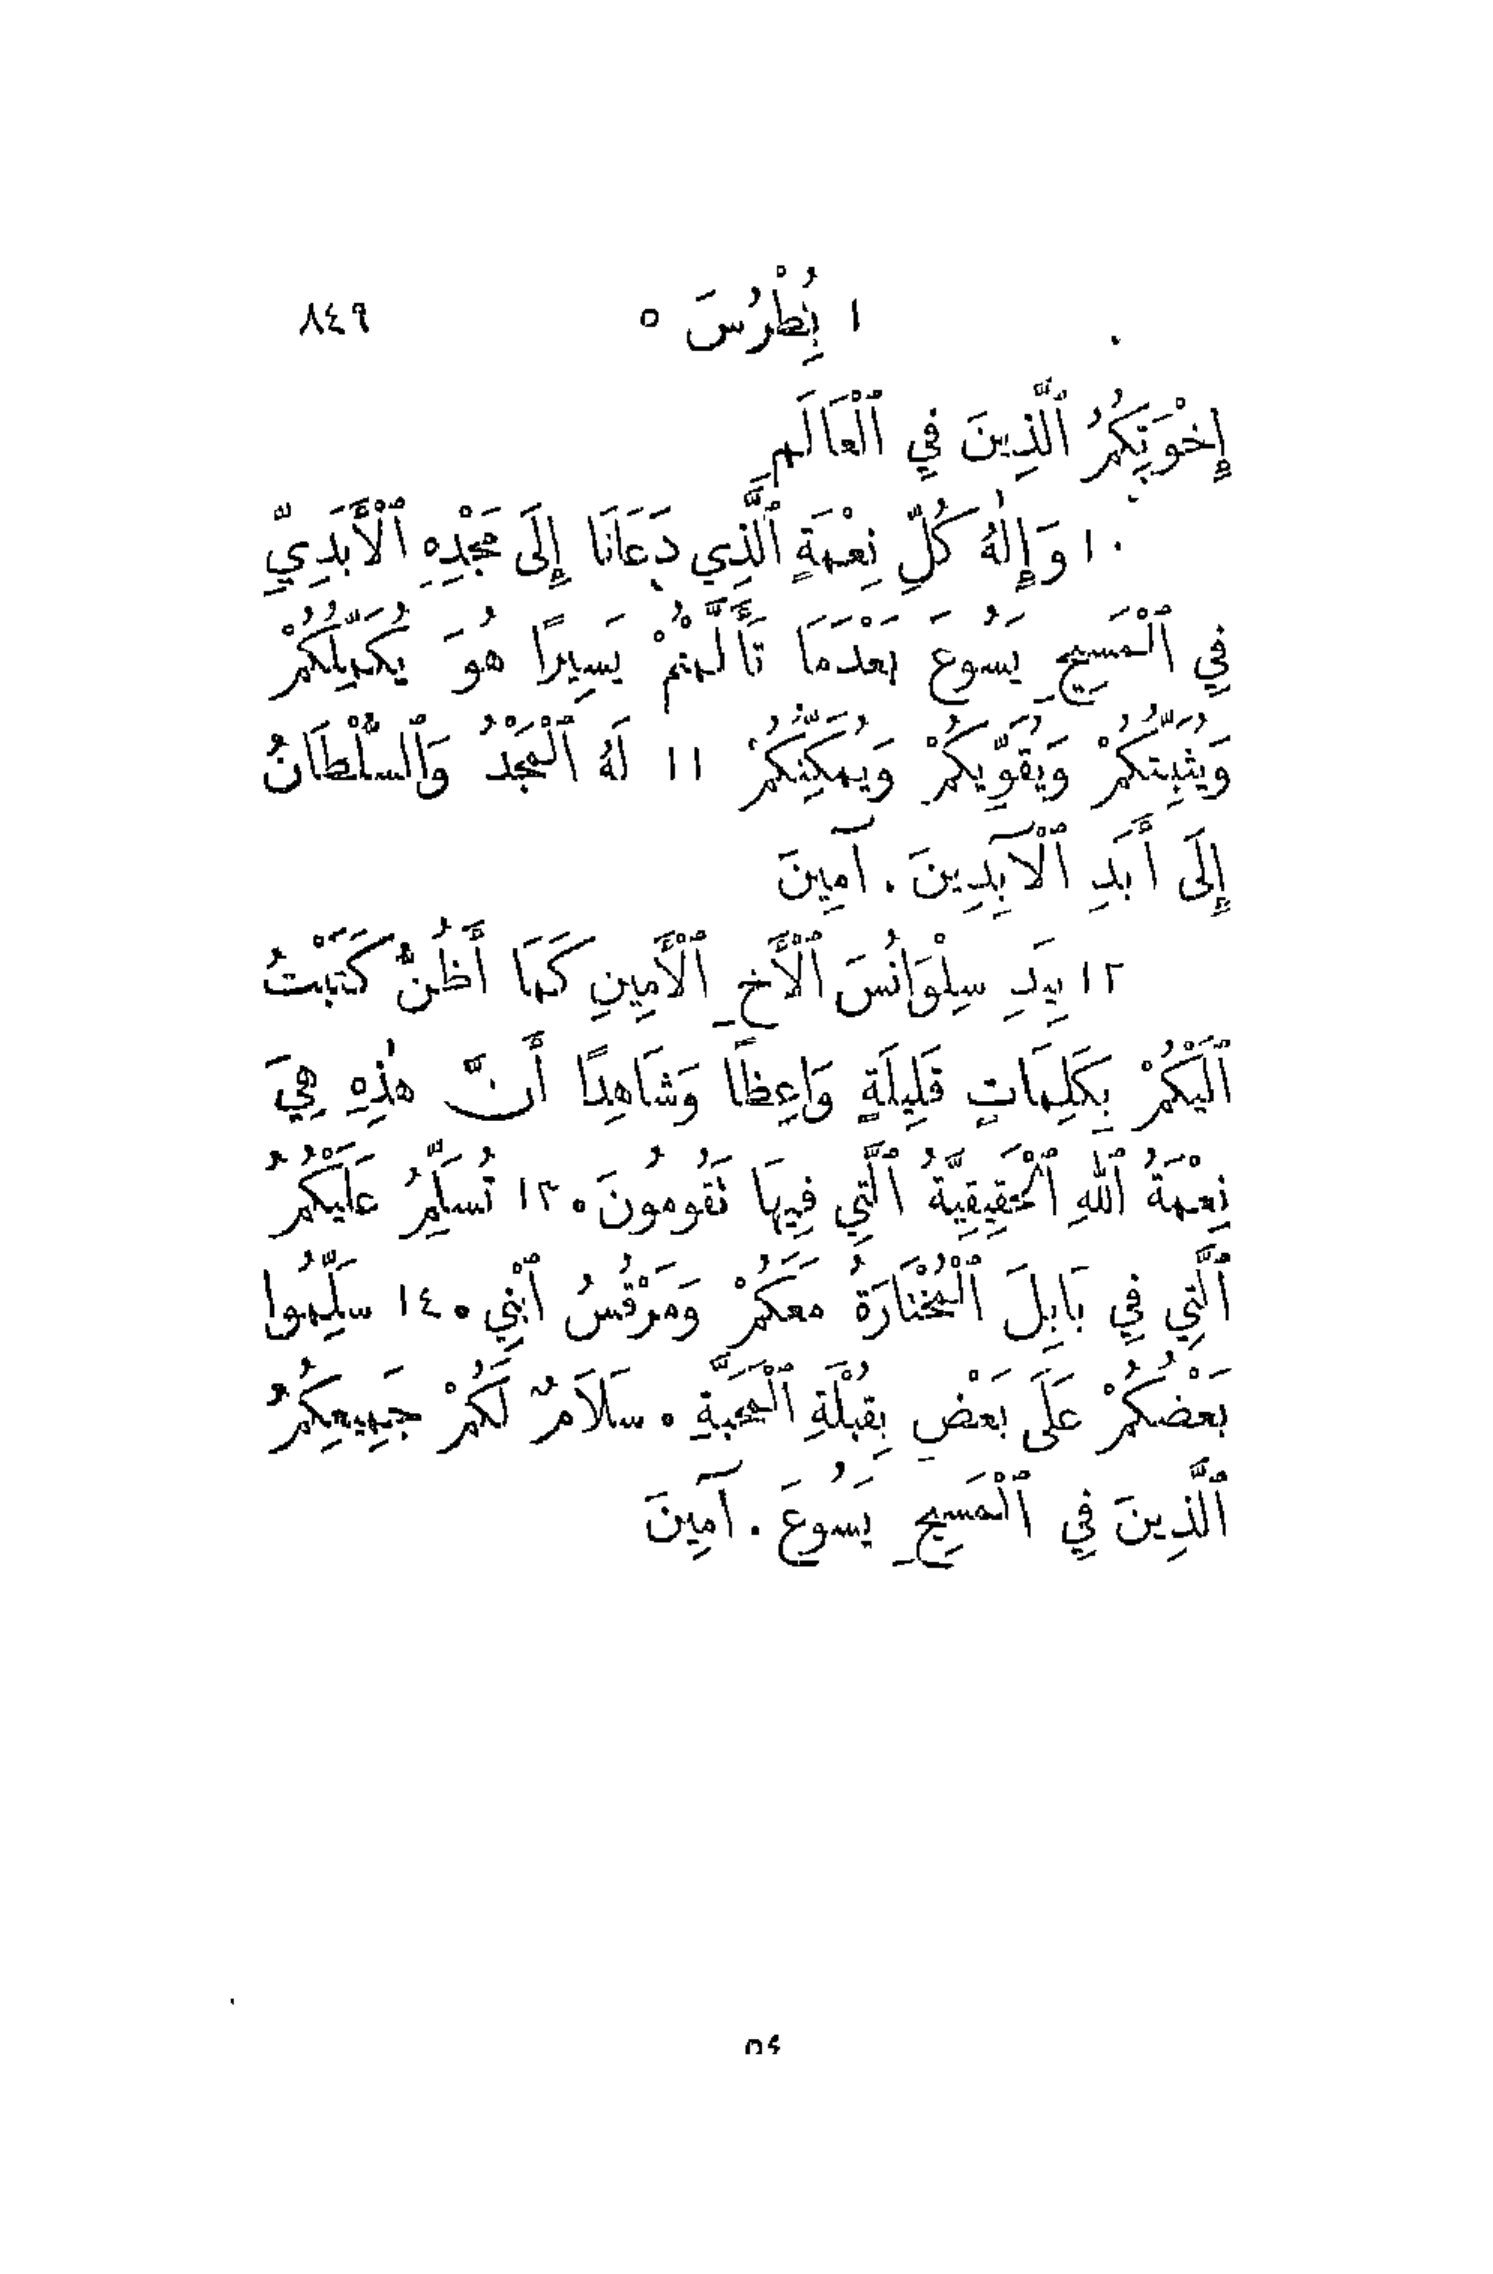 ١ بُطْرُسَ ٥ ٨٤٩
إِخْوَتِكُمُ ٱلَّذِينَ فِي ٱلْعَالَمِ
١٠ وَإِلٰهُ كُلِّ نِعْمَةٍ ٱلَّذِي دَعَانَا إِلَى مَجْدِهِ ٱلْأَبَدِيِّ
فِي ٱلْمَسِيحِ يَسُوعَ بَعْدَمَا تَأَلَّمْتُمْ يَسِيرًا هُوَ يُكَمِّلُكُمْ
وَيُثَبِّتُكُمْ وَيُقَوِّيكُمْ وَيُمَكِّنُكُمْ ١١ لَهُ ٱلْمَجْدُ وَٱلسُّلْطَانُ
إِلَى أَبَدِ ٱلْآبِدِينَ . آمِينَ
١٢ بِيَدِ سِلْوَانُسَ ٱلْأَخِ ٱلْأَمِينِ كَمَا أَظُنُّ كَتَبْتُ
اَلَيْكُمْ بِكَلِمَاتٍ قَلِيلَةٍ وَاعِظًا وَشَاهِدًا أَنَّ هٰذِهِ هِيَ
نِعْمَةُ ٱللهِ ٱلْحَقِيقِيَّةُ ٱلَّتِي فِيهَا تَقُومُونَ. ١٣ تُسَلِّمُ عَلَيْكُمُ
ٱلَّتِي فِي بَابِلَ ٱلْمُخْتَارَةُ مَعَكُمْ وَمَرْقُسُ ٱبْنِي. ١٤ سَلِّمُوا
بَعْضُكُمْ عَلَى بَعْضٍ بِقُبْلَةِ ٱلْمَحَبَّةِ . سَلَامٌ لَكُمْ جَمِيعِكُمُ
ٱلَّذِينَ فِي ٱلْمَسِيحِ يَسُوعَ . آمِينَ
٥٤